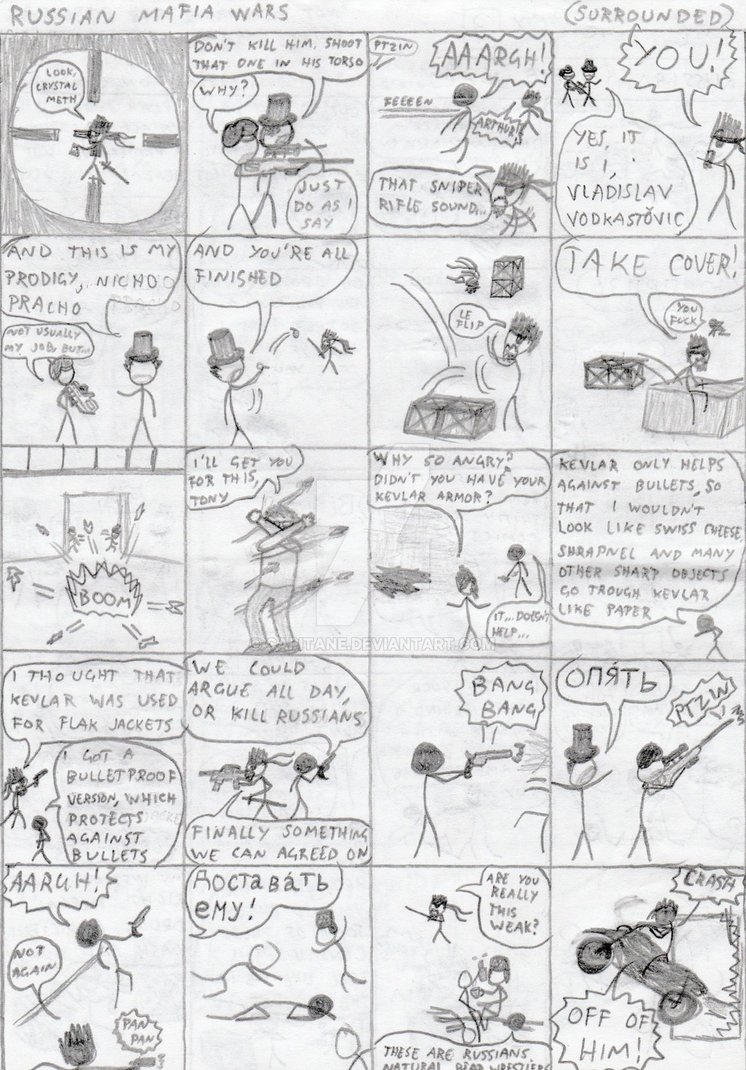 RUSSIAN MAFIA WARS
(SURROUNDED)
LOOK,
CRYSTAL
METH
DON'T KILL HIM. SHOOT
THAT ONE IN HIS TORSO
WHY?
JUST
DO AS I
SAY
PTZIN
AAARGH!
EEEEEN
ARTHUR!
THAT SNIPER
RIFLE SOUND...
YOU!
YES, IT
IS I,
VLADISLAV
VODKASTŎVIC
AND THIS IS MY
PRODIGY, NICHOO
PRACHO
NOT USUALLY
MY JOB, BUT...
AND YOU'RE ALL
FINISHED
LE
FLIP
TAKE COVER!
YOU
FUCK
BOOM
I'LL GET YOU
FOR THIS,
TONY
WHY SO ANGRY?
DIDN'T YOU HAVE YOUR
KEVLAR ARMOR?
IT... DOESN'T
HELP...
KEVLAR ONLY HELPS
AGAINST BULLETS, SO
THAT I WOULDN'T
LOOK LIKE SWISS CHEESE,
SHRAPNEL AND MANY
OTHER SHARP OBJECTS
GO TROUGH KEVLAR
LIKE PAPER
DEVIANTART.COM
I THOUGHT THAT
KEVLAR WAS USED
FOR FLAK JACKETS
I GOT A
BULLETPROOF
VERSION, WHICH
PROTECTS
AGAINST
BULLETS
WE COULD
ARGUE ALL DAY,
OR KILL RUSSIANS
FINALLY SOMETHING
WE CAN AGREED ON
BANG
BANG
ОПЯ́ТЬ
PTZIN
AARGH!
NOT
AGAIN
PAN
PAN
Достава́ть
ему!
ARE YOU
REALLY
THIS
WEAK?
THESE ARE RUSSIANS,
NATURAL BEAR WRESTLERS
CRASH
OFF OF
HIM!